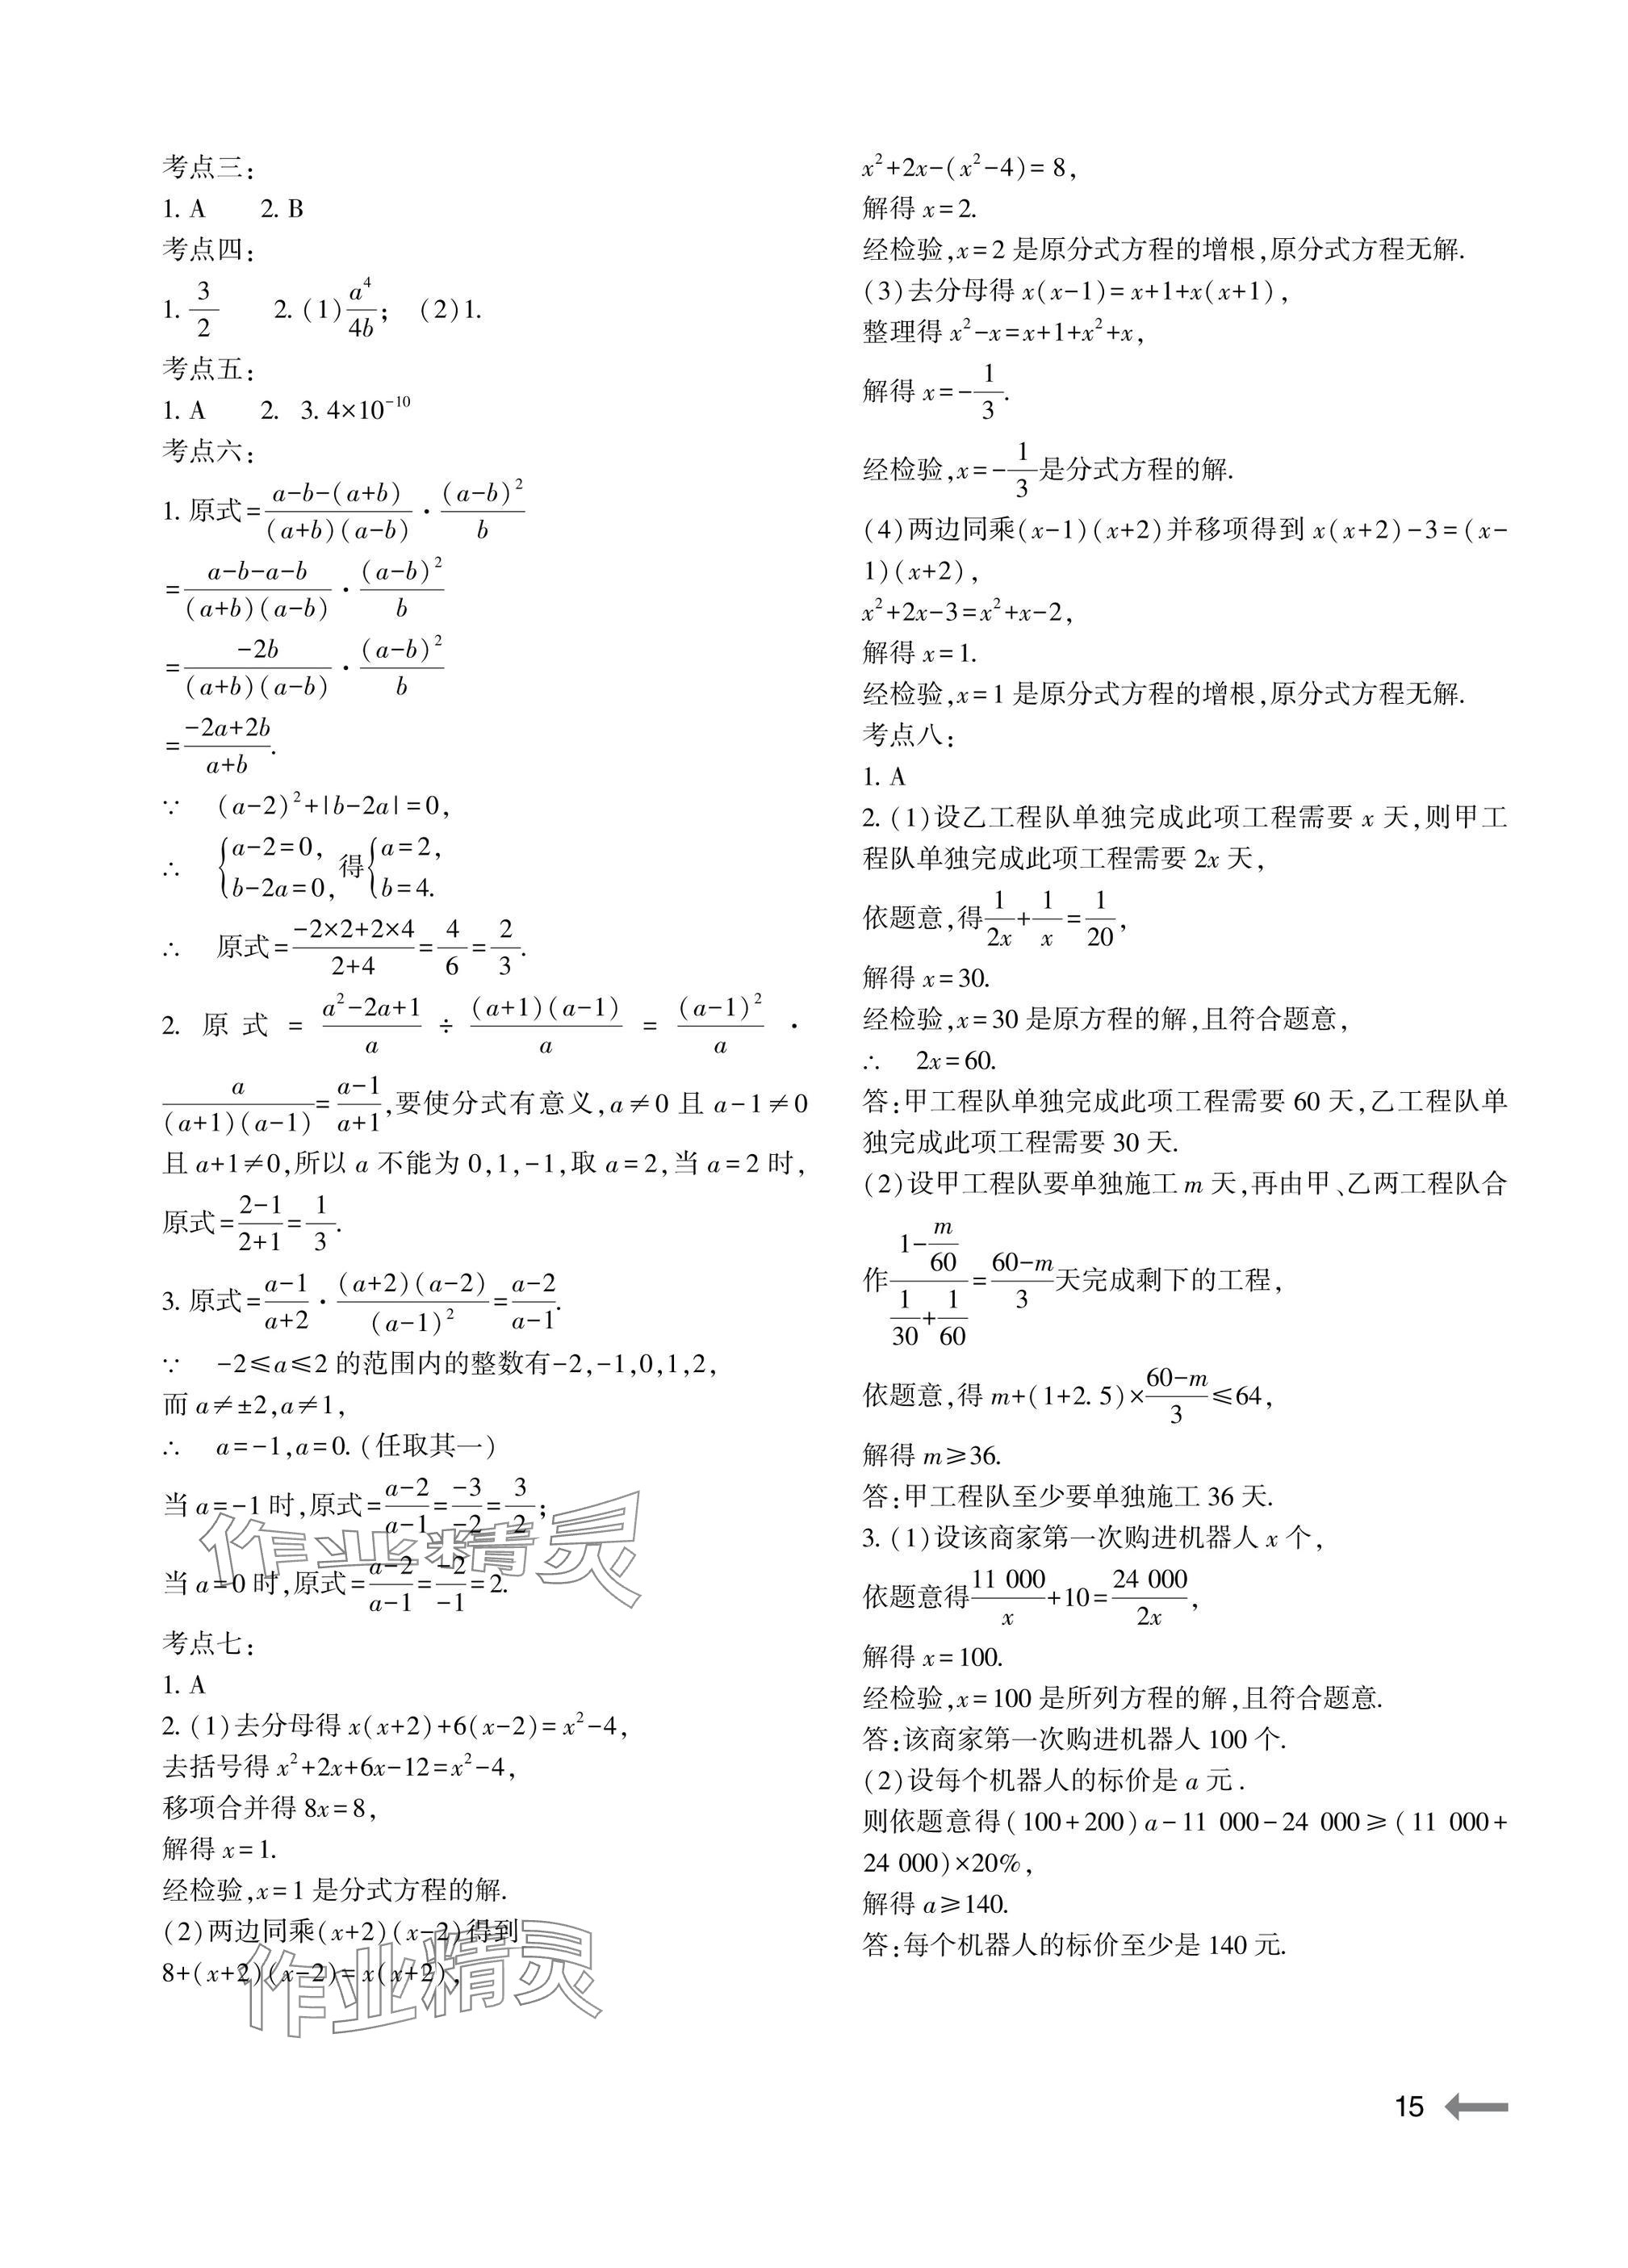 考点三:
1. A  2. B
考点四:
1. \frac{3}{2}  2. (1)\frac{a^4}{4b}; (2)1.
考点五:
1. A  2. 3. 4×10^{-10}
考点六:
1. 原式=\frac{a-b-(a+b)}{(a+b)(a-b)}·\frac{(a-b)^2}{b}
=\frac{a-b-a-b}{(a+b)(a-b)}·\frac{(a-b)^2}{b}
=\frac{-2b}{(a+b)(a-b)}·\frac{(a-b)^2}{b}
=\frac{-2a+2b}{a+b}.
∵ (a-2)^2+|b-2a|=0,
∴ \begin{cases}a-2=0,\\b-2a=0,\end{cases}得\begin{cases}a=2,\\b=4.\end{cases}
∴ 原式=\frac{-2×2+2×4}{2+4}=\frac{4}{6}=\frac{2}{3}.
2. 原式=\frac{a^2-2a+1}{a}÷\frac{(a+1)(a-1)}{a}=\frac{(a-1)^2}{a}·
\frac{a}{(a+1)(a-1)}=\frac{a-1}{a+1},要使分式有意义,a≠0 且 a-1≠0
且 a+1≠0,所以 a 不能为 0,1,-1,取 a=2,当 a=2 时,
原式=\frac{2-1}{2+1}=\frac{1}{3}.
3. 原式=\frac{a-1}{a+2}·\frac{(a+2)(a-2)}{(a-1)^2}=\frac{a-2}{a-1}.
∵ -2≤a≤2 的范围内的整数有-2,-1,0,1,2,
而 a≠±2,a≠1,
∴ a=-1,a=0.(任取其一)
当 a=-1 时,原式=\frac{a-2}{a-1}=\frac{-3}{-2}=\frac{3}{2};
当 a=0 时,原式=\frac{a-2}{a-1}=\frac{-2}{-1}=2.
作业精灵
考点七:
1. A
2. (1)去分母得 x(x+2)+6(x-2)=x^2-4,
去括号得 x^2+2x+6x-12=x^2-4,
移项合并得 8x=8,
解得 x=1.
经检验,x=1 是分式方程的解.
(2)两边同乘(x+2)(x-2)得到
8+(x+2)(x-2)=x(x+2),
作业精灵
x^2+2x-(x^2-4)=8,
解得 x=2.
经检验,x=2 是原分式方程的增根,原分式方程无解.
(3)去分母得 x(x-1)=x+1+x(x+1),
整理得 x^2-x=x+1+x^2+x,
解得 x=-\frac{1}{3}.
经检验,x=-\frac{1}{3}是分式方程的解.
(4)两边同乘(x-1)(x+2)并移项得到 x(x+2)-3=(x-
1)(x+2),
x^2+2x-3=x^2+x-2,
解得 x=1.
经检验,x=1 是原分式方程的增根,原分式方程无解.
考点八:
1. A
2. (1)设乙工程队单独完成此项工程需要 x 天,则甲工
程队单独完成此项工程需要 2x 天,
依题意,得\frac{1}{2x}+\frac{1}{x}=\frac{1}{20},
解得 x=30.
经检验,x=30 是原方程的解,且符合题意,
∴ 2x=60.
答:甲工程队单独完成此项工程需要 60 天,乙工程队单
独完成此项工程需要 30 天.
(2)设甲工程队要单独施工 m 天,再由甲、乙两工程队合
作\frac{1-\frac{m}{60}}{\frac{1}{30}+\frac{1}{60}}=\frac{60-m}{3}天完成剩下的工程,
依题意,得 m+(1+2. 5)×\frac{60-m}{3}≤64,
解得 m≥36.
答:甲工程队至少要单独施工 36 天.
3. (1)设该商家第一次购进机器人 x 个,
依题意得\frac{11 000}{x}+10=\frac{24 000}{2x},
解得 x=100.
经检验,x=100 是所列方程的解,且符合题意.
答:该商家第一次购进机器人 100 个.
(2)设每个机器人的标价是 a 元.
则依题意得(100+200)a-11 000-24 000≥(11 000+
24 000)×20%,
解得 a≥140.
答:每个机器人的标价至少是 140 元.
15